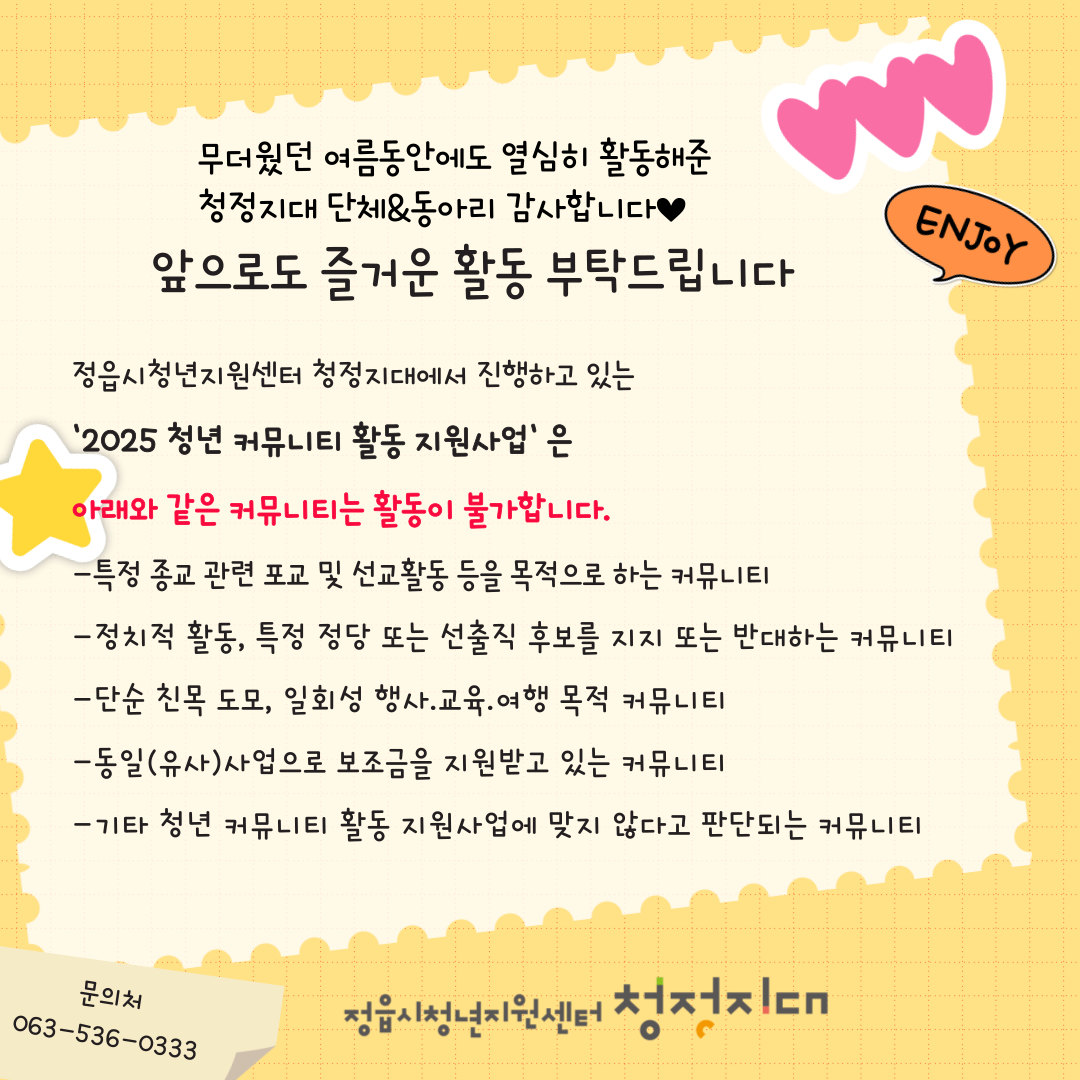 무더웠던 여름동안에도 열심히 활동해준
청정지대 단체&동아리 감사합니다♥
앞으로도 즐거운 활동 부탁드립니다
ENJOY
정읍시청년지원센터 청정지대에서 진행하고 있는
'2025 청년 커뮤니티 활동 지원사업' 은
아래와 같은 커뮤니티는 활동이 불가합니다.
-특정 종교 관련 포교 및 선교활동 등을 목적으로 하는 커뮤니티
-정치적 활동, 특정 정당 또는 선출직 후보를 지지 또는 반대하는 커뮤니티
-단순 친목 도모, 일회성 행사.교육.여행 목적 커뮤니티
-동일(유사)사업으로 보조금을 지원받고 있는 커뮤니티
-기타 청년 커뮤니티 활동 지원사업에 맞지 않다고 판단되는 커뮤니티
문의처
063-536-0333
정읍시청년지원센터 청정지대